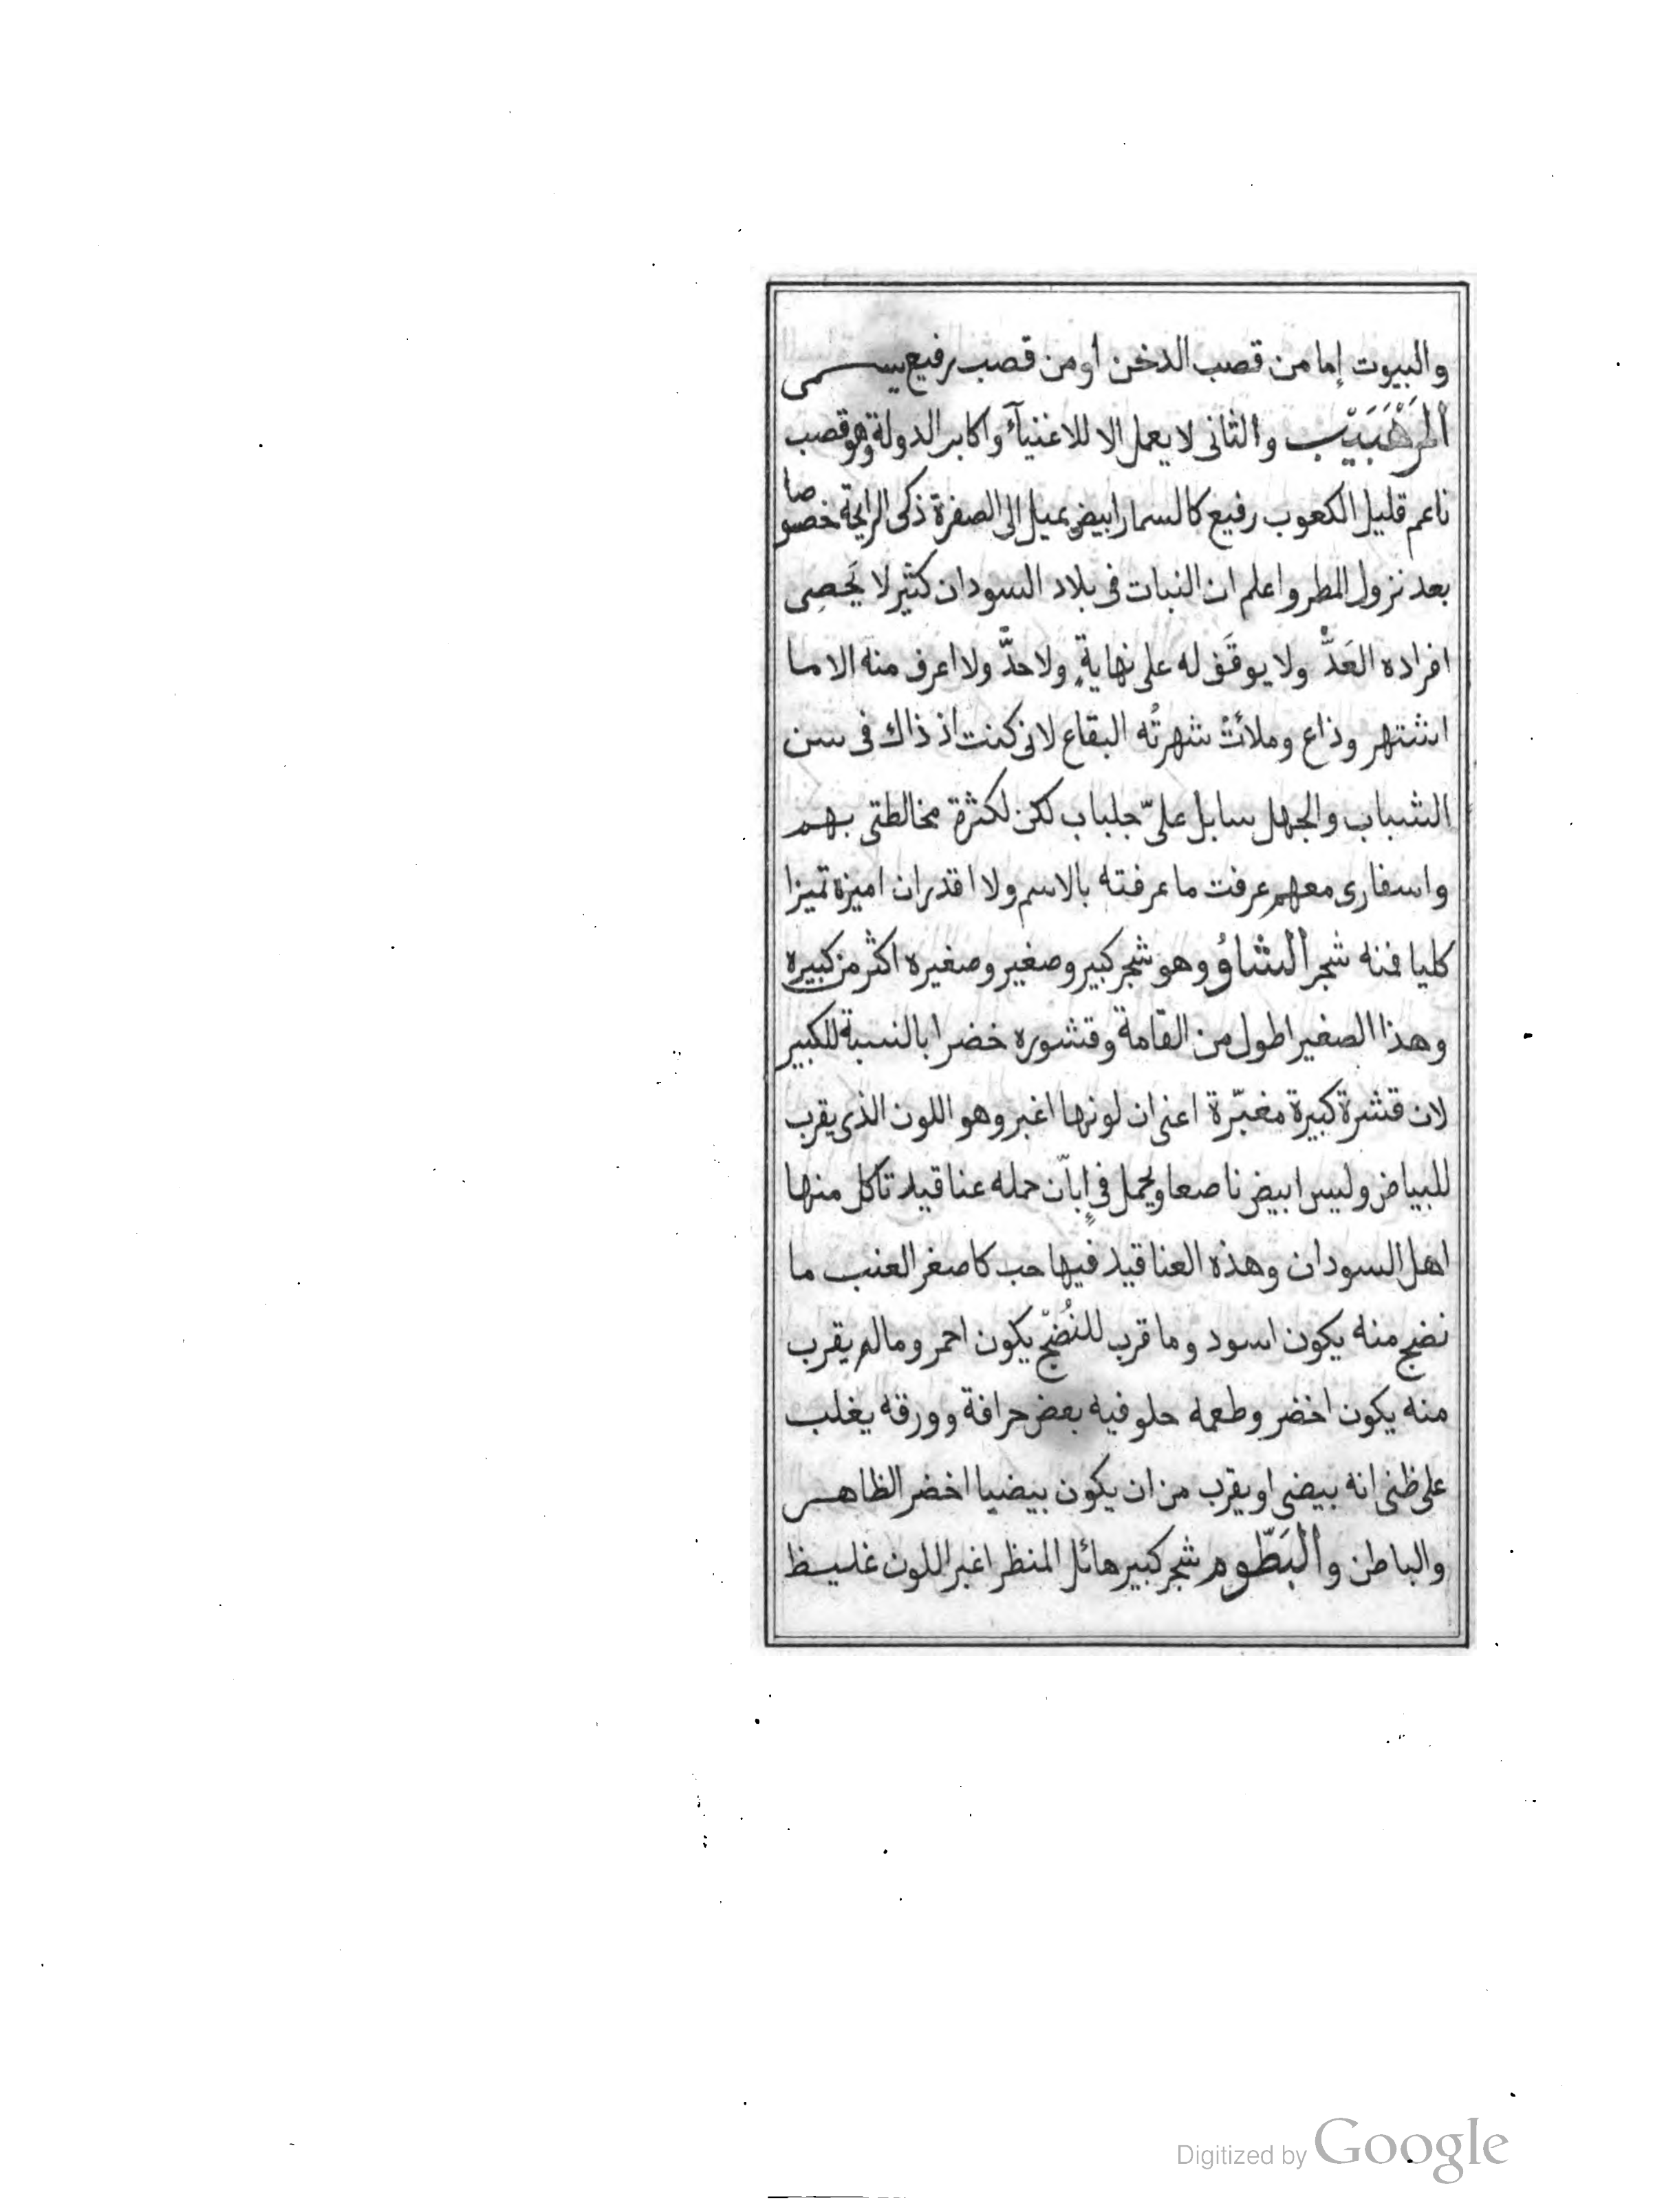 والبيوت إما من قصب الدخن أو من قصب رفيع يسمى
المَرْهَبَيْب والثانى لا يعمل الا للاغنيآء واكابر الدولة وهو قصب
ناعم قليل الكعوب رفيع كالسمار ابيض يميل الى الصفرة ذكى الرايحة خصوصا
بعد نزول المطر واعلم ان النبات فى بلاد السودان كثير لا يَحصِى
افراده العَدُّ ولا يوقَف له على نهايةٍ ولا حدٍّ ولا اعرف منه الا ما
اشتهر وذاع وملأتْ شهرتُه البقاع لانى كنت اذ ذاك فى سن
الشباب والجهل سابل علىّ جلباب لكن لكثرة مخالطتى بهم
واسفارى معهم عرفت ما عرفته بالاسم ولا اقدر ان اميزه تميزا
كليا فمنه شجر الشاؤُ وهو شجر كبير وصغير وصغيره اكثر من كبيره
وهذا الصغير اطول من القامة وقشوره خضرا بالنسبة للكبير
لان قشرة كبيرة مغبّرة اعنى ان لونها اغبر وهو اللون الذى يقرب
للبياض وليس ابيض ناصعا ويحمل فى إبّان حمله عناقيد تاكل منها
اهل السودان وهذه العناقيد فيها حب كاصغر العنب ما
نضج منه يكون اسود وما قرب للنُضْج يكون احمر ومالم يقرب
منه يكون اخضر وطعمه حلو فيه بعض حرافة وورقه يغلب
على ظنى انه بيضى او يقرب من ان يكون بيضيا اخضر الظاهر
والباطن والبَطّوم شجر كبير هائل المنظر اغبر اللون غليظ
Digitized by Google